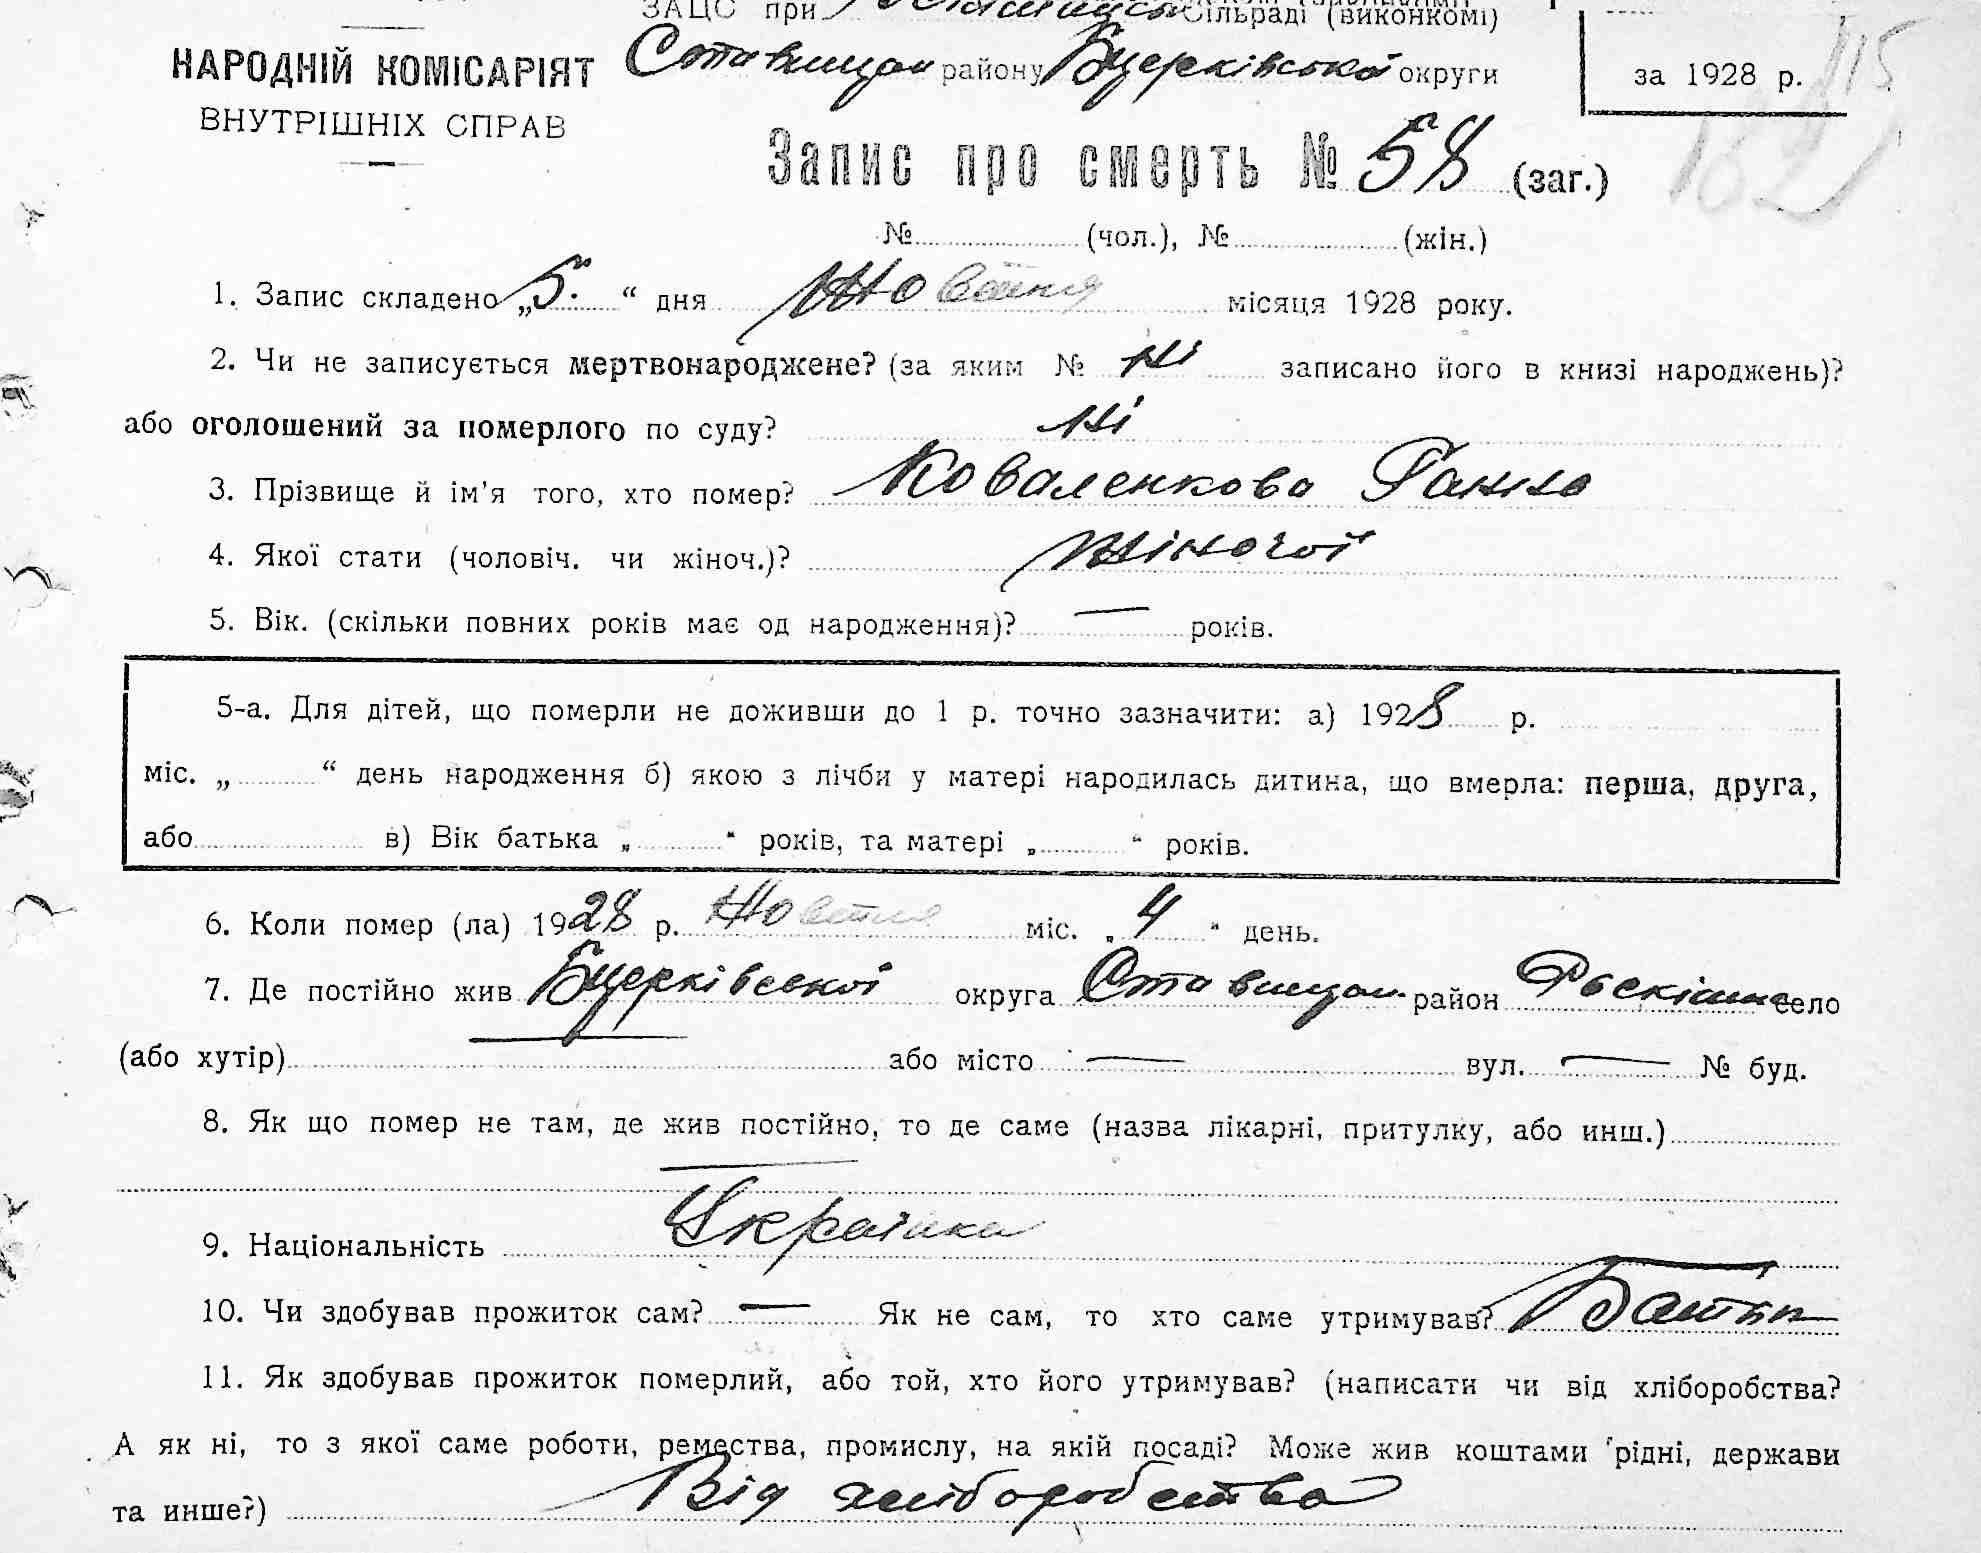 ЗАЦС при сільраді (виконкомі)
НАРОДНІЙ КОМІСАРІЯТ
ВНУТРІШНІХ СПРАВ
Ставищан району Бцерківської округи
за 1928 р. 115
162
Запис про смерть № 58 (заг.)
№ (чол.), № (жін.)
1. Запис складено „5." дня Жовтня місяця 1928 року.
2. Чи не записується мертвонароджене? (за яким № ні записано його в книзі народжень)?
або оголошений за померлого по суду? ні
3. Прізвище й ім'я того, хто помер? Коваленкова Ганна
4. Якої стати (чоловіч. чи жіноч.)? Жіночої
5. Вік. (скільки повних років має од народження)? — років.
5-а. Для дітей, що померли не доживши до 1 р. точно зазначити: а) 1928 р.
міс. „ “ день народження б) якою з лічби у матері народилась дитина, що вмерла: перша, друга,
або в) Вік батька „ “ років, та матері „ “ років.
6. Коли помер (ла) 1928 р. Жовтня міс. „4“ день.
7. Де постійно жив Бцерківської округа Ставищан район село
(або хутір) або місто — вул. — № буд.
8. Як що помер не там, де жив постійно, то де саме (назва лікарні, притулку, або инш.)
9. Національність Українка
10. Чи здобував прожиток сам? — Як не сам, то хто саме утримував? Батьк
11. Як здобував прожиток померлий, або той, хто його утримував? (написати чи від хліборобства?
А як ні, то з якої саме роботи, ремества, промислу, на якій посаді? Може жив коштами рідні, держави
та инше?) Від хліборобства